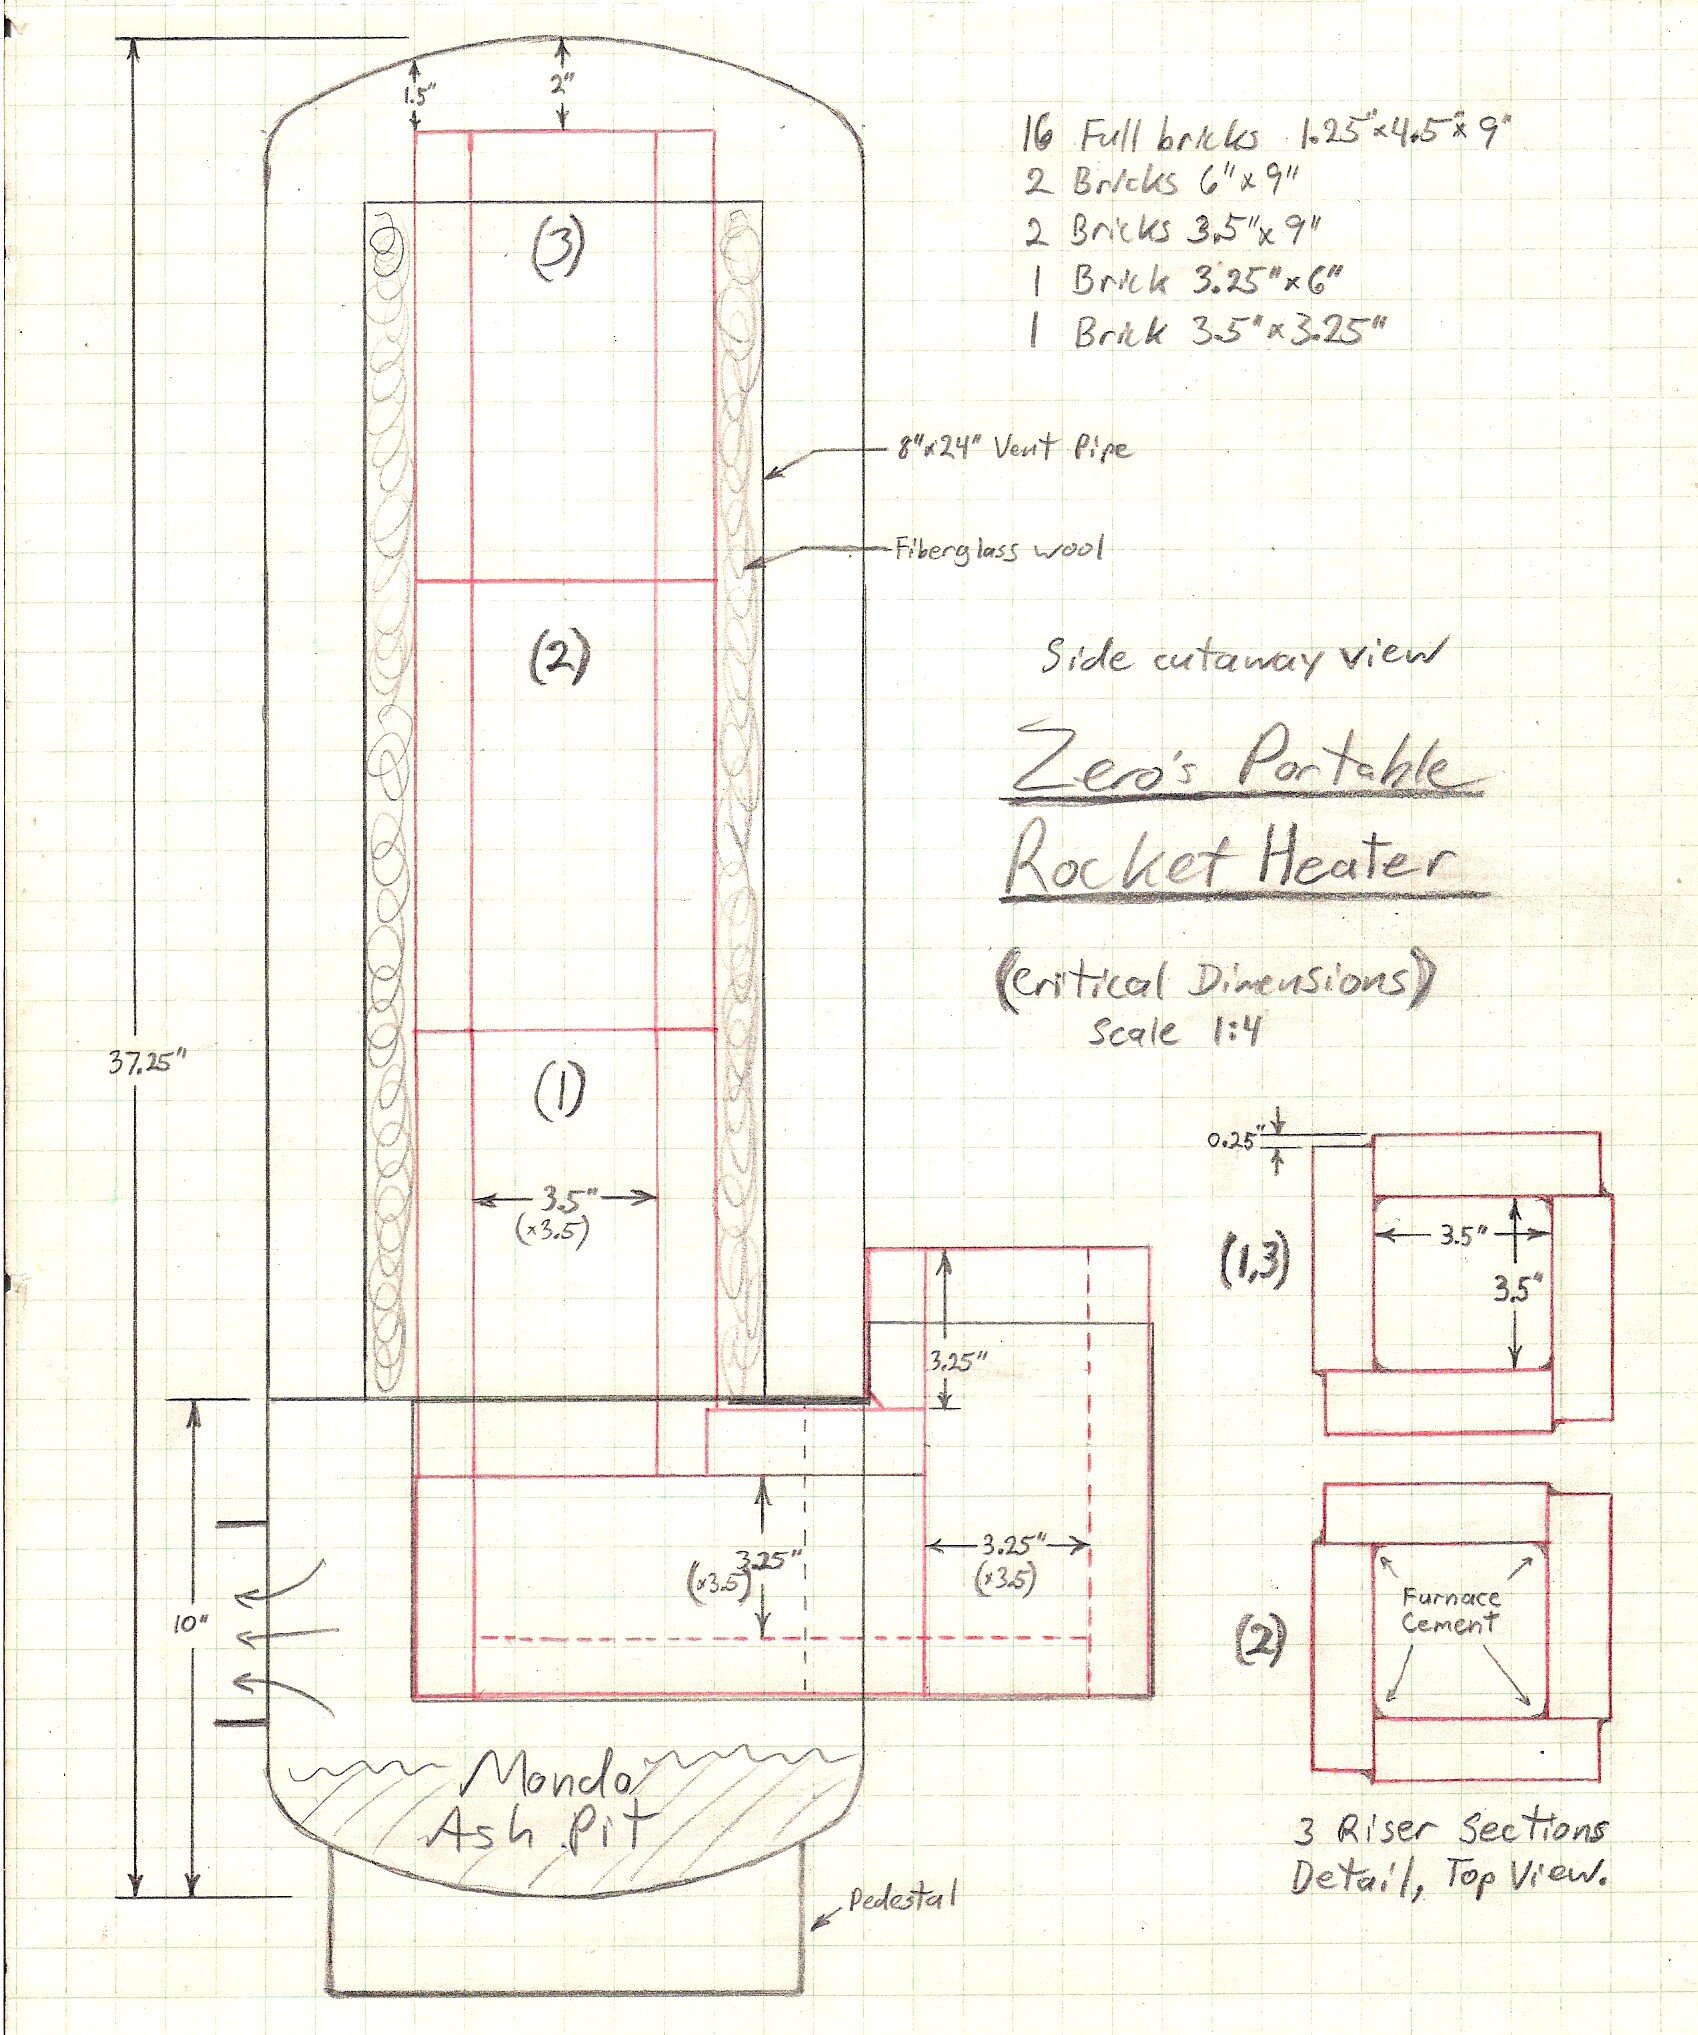 1.5"
2"
16 Full bricks 1.25"x4.5"x9"
2 Bricks 6"x9"
2 Bricks 3.5"x9"
1 Brick 3.25"x6"
1 Brick 3.5"x3.25"
(3)
8"x24" Vent Pipe
Fiberglass wool
(2)
Side cutaway view
Zero's Portable
Rocket Heater
(Critical Dimensions)
Scale 1:4
37.25"
(1)
3.5"
(x3.5)
0.25"
(1,3)
3.5"
3.5"
3.25"
3.25"
(x3.5)
3.25"
(x3.5)
10"
(2)
Furnace
Cement
Mondo
Ash Pit
3 Riser Sections
Detail, Top View.
Pedestal